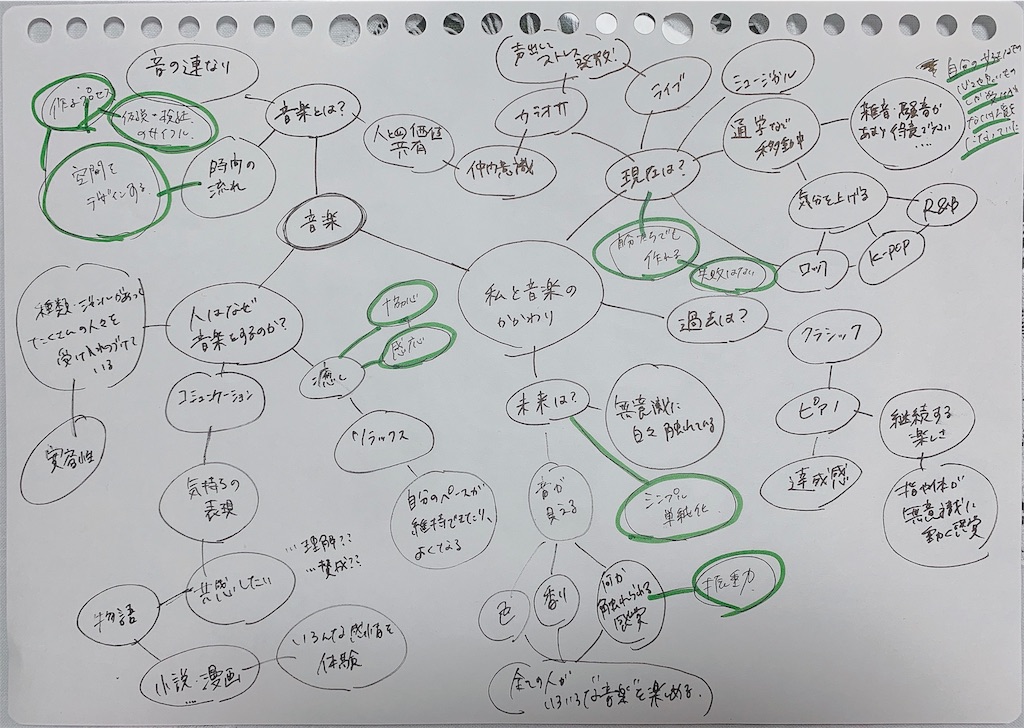 音の連なり
作るプロセス
仮説・検証
のサイクル
音楽とは?
空間を
デザインする
時間の
流れ
音楽
人との価値
共有
仲間意識
声出して
ストレス発散!
カラオケ
ライブ
ミュージカル
現在は?
通学など
移動中
雑音・騒音が
あまり得意でない
....
自分の
気分を上げる
R&B
K-POP
ロック
自分たちでも
作れる
失敗はない
私と音楽の
かかわり
過去は?
クラシック
ピアノ
達成感
継続する
楽しさ
指や体が
無意識に
動く感覚
種類・ジャンルがあって
たくさんの人々を
受け入れつづけて
いる
変容性
人はなぜ
音楽をするのか?
コミュニケーション
気持ちの
表現
共感したい
...理解??
...賛成??
物語
小説・漫画
....
いろんな感情を
体験
癒し
感応
リラックス
自分のペースが
維持できたり、
よくなる
未来は?
無意識に
日々触れている
シンプル
単純化
音が
見える
色
香り
何か
触れられる
感覚
振動
全ての人が
いろいろな"音楽"を楽しめる.